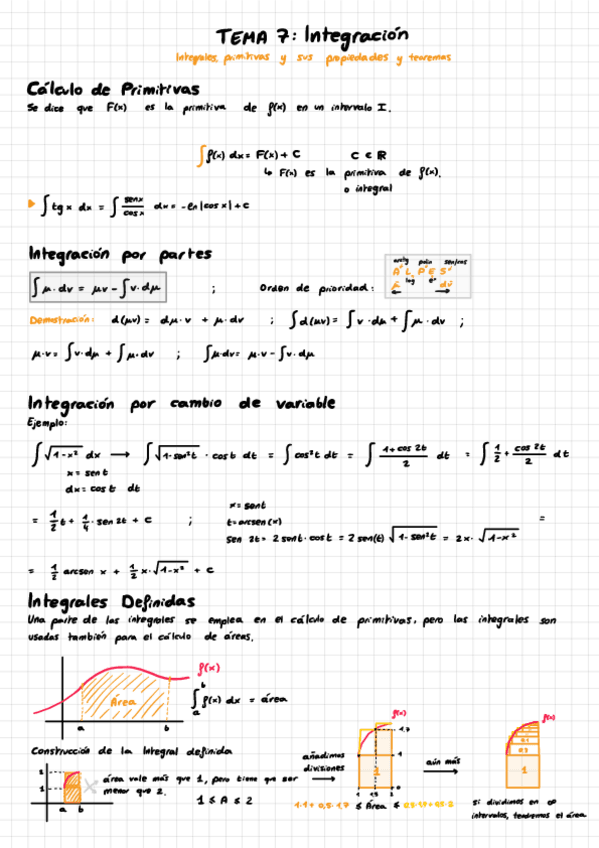 TEMA 7: Integración
Integrales, primitivas y sus propiedades y teoremas
Cálculo de Primitivas
Se dice que F(x) es la primitiva de f(x) en un intervalo I.
∫f(x) dx = F(x) + C C ∈ ℝ
↳ F(x) es la primitiva de f(x).
o integral
∫tg x dx = ∫ senx/cosx dx = -ln|cos x| + c
Integración por partes
∫μ·dv = μv - ∫v·dμ ; Orden de prioridad:
arctg polin sen/cos
A L P E S
log eˣ
μ dv
Demostración: d(μv) = dμ·v + μ·dv ; ∫d(μv) = ∫v·dμ + ∫μ·dv ;
μ·v = ∫v·dμ + ∫μ·dv ; ∫μ·dv = μ·v - ∫v·dμ
Integración por cambio de variable
Ejemplo:
∫√1-x² dx → ∫√1-sen²t · cost dt = ∫cos²t dt = ∫ 1+cos 2t/2 dt = ∫ 1/2 + cos 2t/2 dt
x = sen t
dx = cos t dt
= 1/2 t + 1/4 · sen 2t + c ; x = sent
t = arcsen(x)
sen 2t = 2 sent · cost = 2 sen(t) √1-sen²t = 2x · √1-x² =
= 1/2 arcsen x + 1/2 x·√1-x² + c
Integrales Definidas
Una parte de las integrales se emplea en el cálculo de primitivas, pero las integrales son
usadas también para el cálculo de áreas.
f(x)
Área
∫ₐᵇ f(x) dx = área
a b
Construcción de la integral definida
2
1
a b
área vale más que 1, pero tiene que ser
menor que 2.
1 ≤ A ≤ 2
añadimos
divisiones
f(x)
1,7
1
1
≤ Área ≤
aún más
f(x)
1
si dividimos en ∞
intervalos, tendremos el área